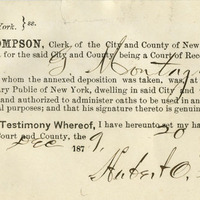 York. } ss.
OMPSON, Clerk, of the City and County of New
for the said City and County being a Court of Reco
G. Montagu
whom the annexed deposition was taken, was, at
ary Public of New York, dwelling in said City and
and authorized to administer oaths to be used in an
l purposes; and that his signature thereto is genuin
Testimony Whereof, I have hereunto set my ha
Court and County, the 20
Dec 1879.